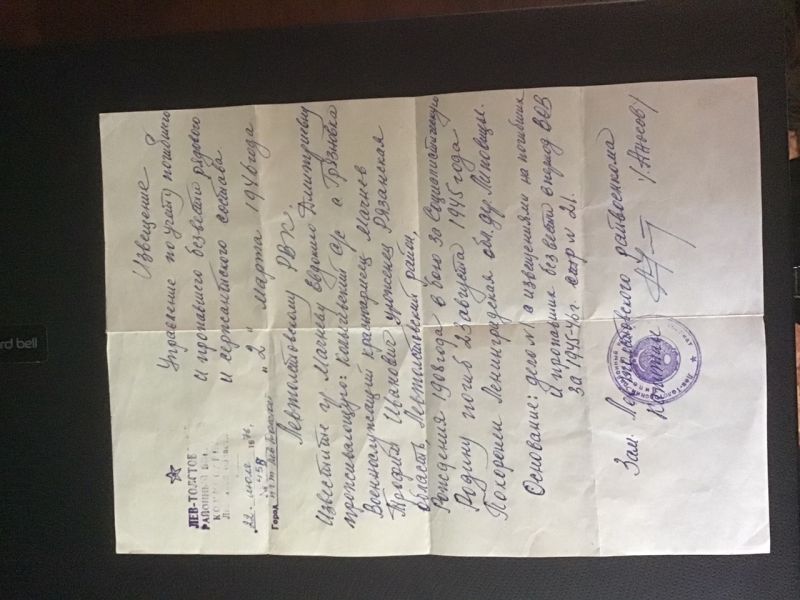 Извещение
Управление по учёту погибшего
и пропавшего безвести рядового
и сержантского состава
"2" Марта 1946 года
ЛЕВ-ТОЛСТОВ
РАЙОННЫЙ
22 июля 1976
№ 458
Город
Левтолстовскому РВК.
Известите гр Магневу Евдокию Дмитриевну
проживающую: с/с с Грязновка
Военнослужащий красноармеец Магнев
Трофим Иванович уроженец Рязанская
область, Левтолстовский район,
Рождения 1908 года в бою за Социалистическую
Родину погиб 23 августа 1945 года
Похоронен Ленинградская обл. др.
Основание: дело №1 с извещениями на погибших
и пропавших безвести в период ВОВ
за 1945-46г. стр № 21.
Зам. Левтолстовского райвоенкома
Капитан
rd bell